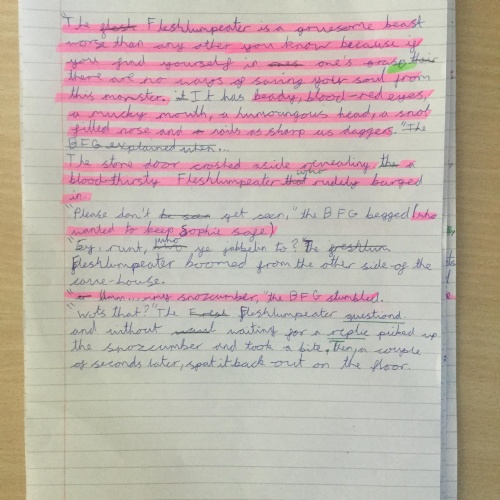 "The Fleshlumpeater is a gruesome beast
worse than any other you know because if
you find yourself in one's grasp
there are no ways of saving your soul from
this monster. It has beady, blood-red eyes,
a mucky mouth, a humoungous head, a snot
filled nose and nails as sharp as daggers." The
BFG explained when...
The stone door crashed aside revealing the a
blood-thirsty Fleshlumpeater who rudely barged
in.
"Please don't get seen," the BFG begged (who
wanted to keep Sophie safe)
runt, who ye jabbelin to? The
Fleshlumpeater boomed from the other side of the
cave-house.
"Umm... my snozcumber," the BFG stumbled.
"Wots that?" The Fleshlumpeater questiond
and without waiting for a replie picked up
the snozcumber and took a bite, Then, a couple
of seconds later, spat it back out on the floor.